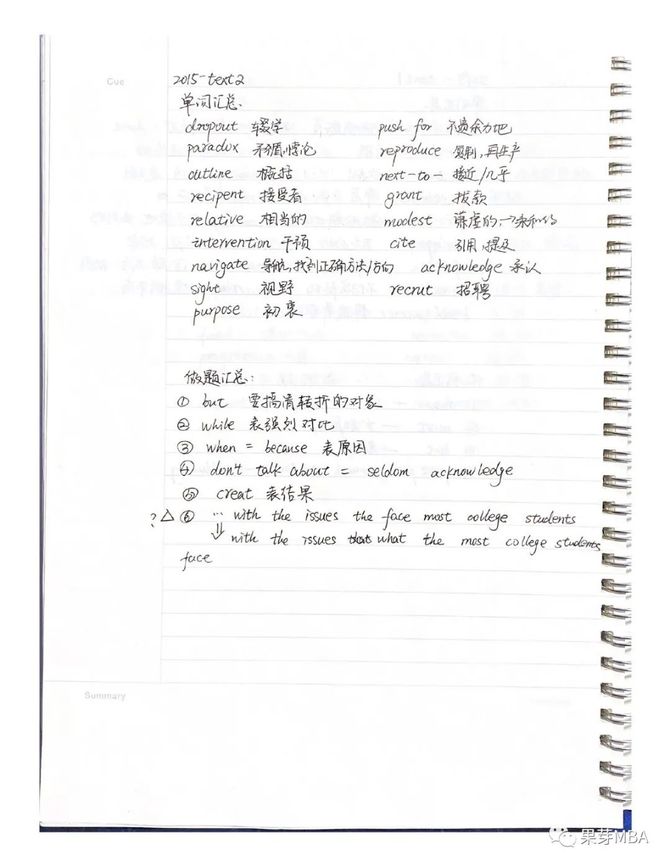 Cue
2015-text2
单词汇总.
dropout 辍学 push for 不遗余力地
paradox 不循, 悖论 reproduce 复制, 再生产
outline 概括 next-to- 接近/几乎
recipent 接受者 grant 拨款
relative 相当的 modest 谦虚的,
intervention 干预 cite 引用, 提及
navigate 导航, 找到正确方法/方向 acknowledge 承认
sight 视野 recrut 招聘
purpose 初衷
做题汇总:
① but 要搞清转折的对象
② while 表强烈对比
③ when = because 表原因
④ don't talk about = seldom acknowledge
⑤ creat 表结果
? △ ⑥ ... with the issues the face most college students
⇓ with the issues what the most college students
face
Summary
果芽MBA